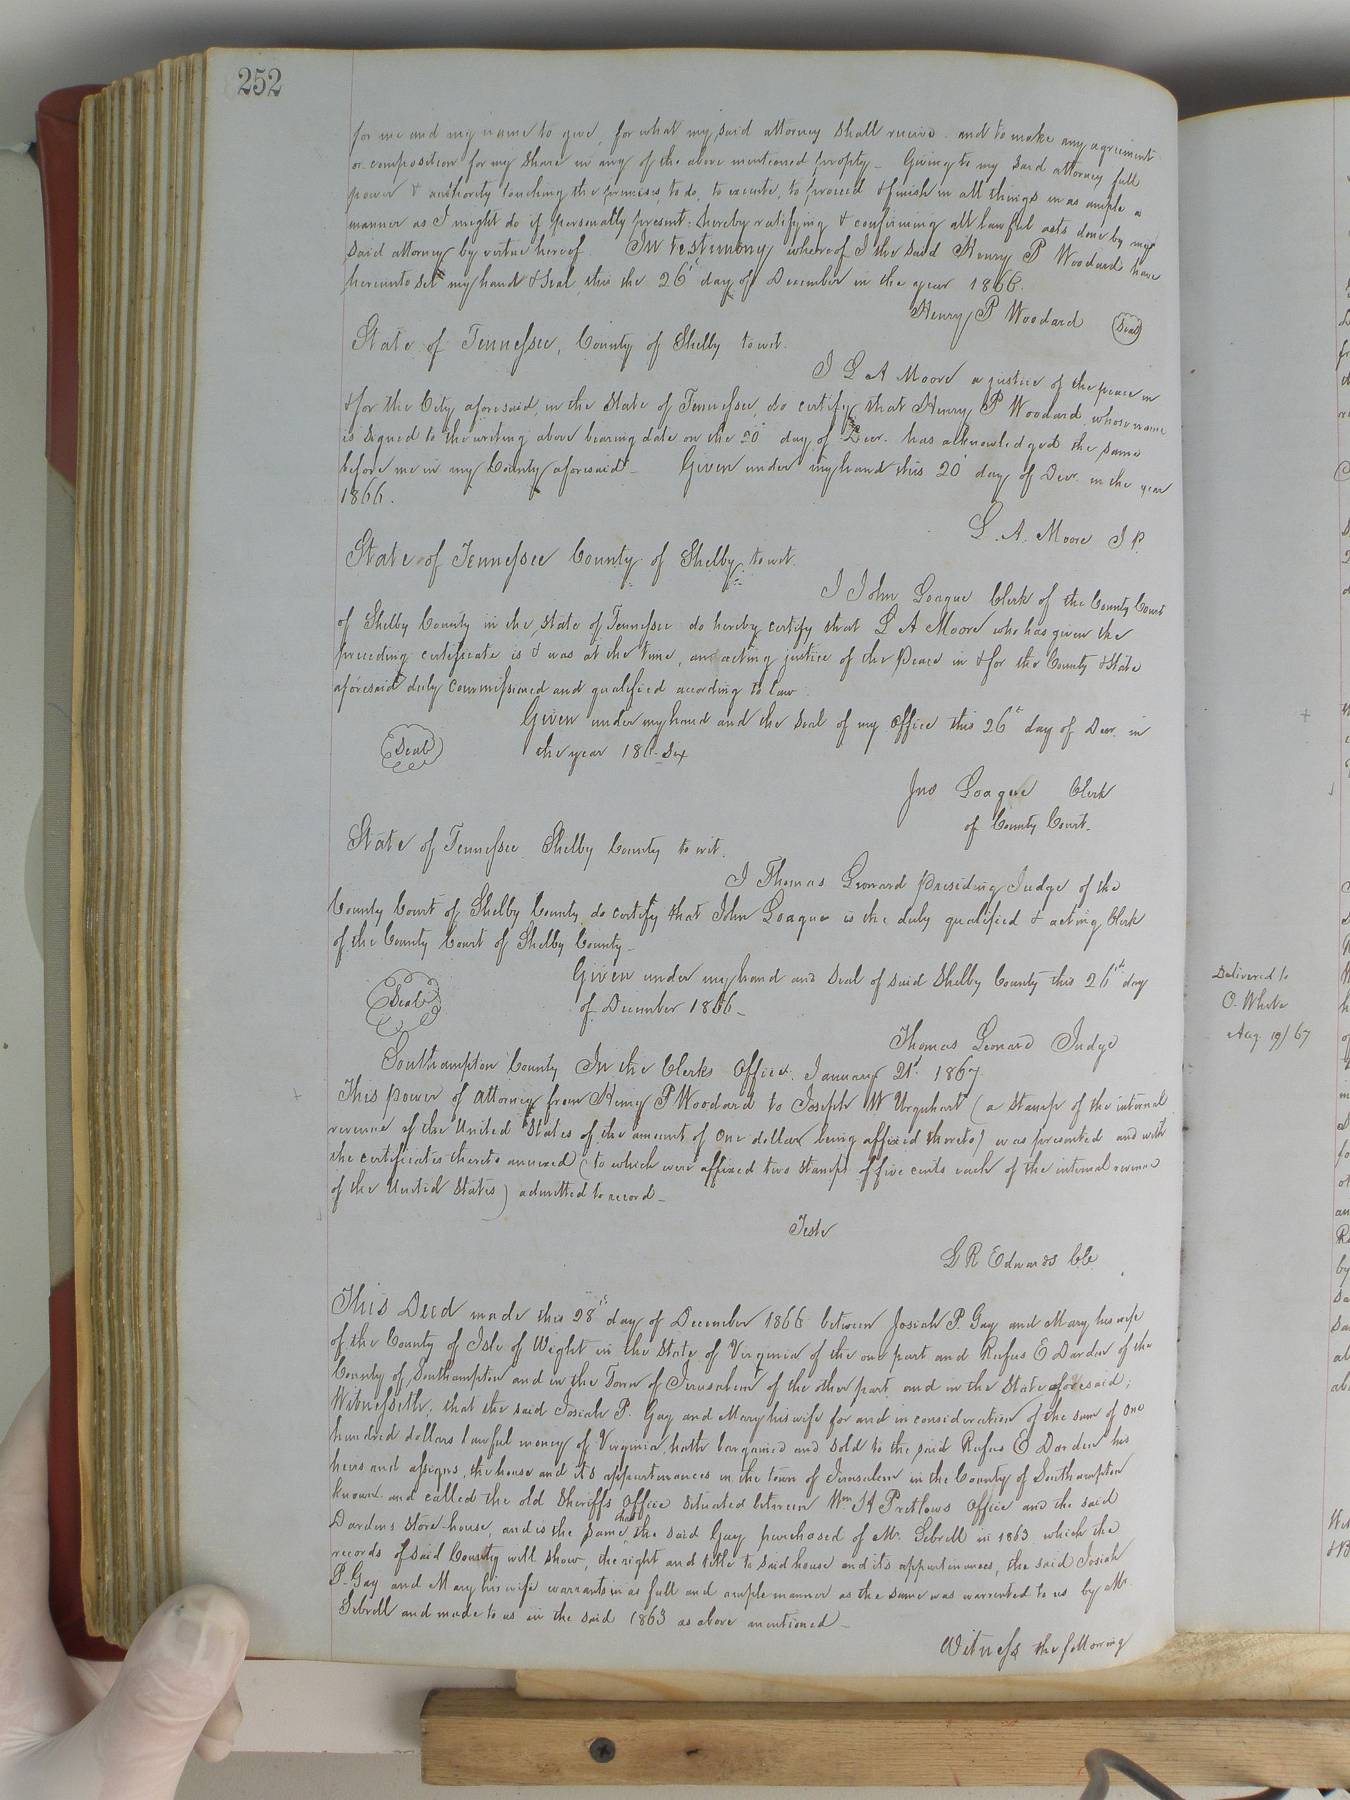 252
for me and my name to give, for what my said attorney shall receive and to make any agreement
or composition for my share in any of the above mentioned propty - Giving to my said attorney full
power & authority touching the premises, to do, to execute, to proceed & finish in all things in as ample a
manner as I might do if personally present, hereby ratifying & confirming all lawful acts done by my
said attorney by virtue hereof. In testimony whereof I the said Henry P Woodard have
hereunto set my hand & Seal, this the 26th day of December in the year 1866.
Henry P Woodard (Seal)
State of Tennessee, County of Shelby to wit.
I L A Moore a justice of the peace in
& for the City aforesaid, in the State of Tennessee, do certify that Henry P Woodard, whose name
is signed to the writing above bearing date on the 20 day of Decr. has acknowledged the same
before me in my County aforesaid - Given under my hand this 20 day of Decr. in the year
1866.
L. A. Moore J P.
State of Tennessee County of Shelby, to wit.
I John Loague Clerk of the County Court
of Shelby County in the State of Tennessee do hereby certify that L A Moore who has given the
preceding certificate is & was at the time, an acting justice of the Peace in & for the County & State
aforesaid duly commissioned and qualified according to law
Given under my hand and the seal of my Office this 26th day of Decr. in
(Seal) the year 186-Six
Jno Loague Clerk
of County Court.
State of Tennessee Shelby County to wit.
I Thomas Leonard Presiding Judge of the
County Court of Shelby County do certify that John Loague is the duly qualified & acting Clerk
of the County Court of Shelby County -
Given under my hand and Seal of said Shelby County this 26th day
(Seal) of December 1866 -
Thomas Leonard Judge
Southampton County In the Clerks Office. January 21st 1867
This power of attorney from Henry P Woodard to Joseph W Urquhart (a stamp of the internal
revenue of the United States of the amount of One dollar being affixed thereto) was presented and with
the certificates thereto annexed (to which were affixed two stamps of five cents each of the internal revenue
of the United States) admitted to record -
Teste
L R Edwards CC
This Deed made this 28th day of December 1866 between Josiah P. Gay and Mary his wife
of the County of Isle of Wight in the State of Virginia of the one part and Rufus E Darden of the
County of Southampton and in the Town of Jerusalem of the other part, and in the State aforesaid;
Witnesseth, that the said Josiah P. Gay and Mary his wife for and in consideration of the sum of One
hundred dollars lawful money of Virginia, hath bargained and sold to the said Rufus E Darden his
heirs and assigns, the house and its appurtenances in the town of Jerusalem in the County of Southampton
known and called the old Sheriffs Office situated between Wm H Pretlows Office and the said
Dardens store-house, and is the same that the said Gay purchased of Mr. Sebrell in 1863 which the
records of said County will show, the right and title to said house and its appurtenances, the said Josiah
P. Gay and Mary his wife warrants in as full and ample manner as the same was warrented to us by Mr.
Sebrell and made to us in the said 1863 as above mentioned -
Witness the following
Delivered to
O. White
Aug 19/67